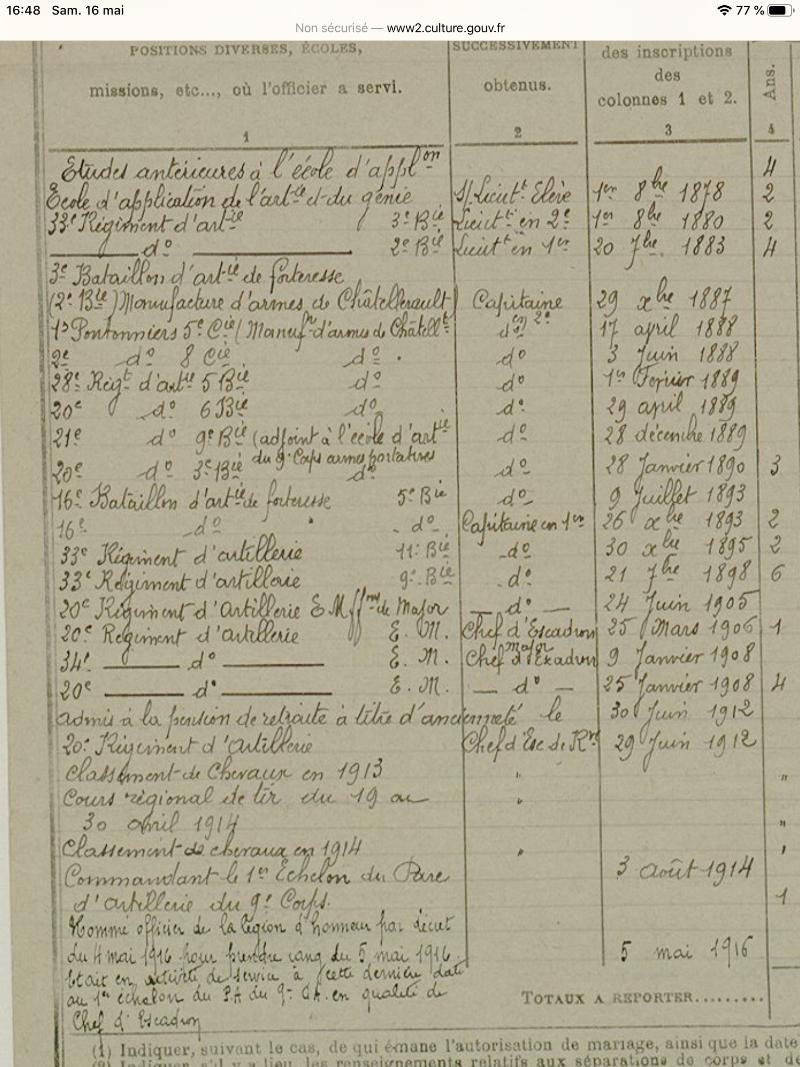 16:48 Sam. 16 mai 77 %
Non sécurisé — www2.culture.gouv.fr
POSITIONS DIVERSES, ÉCOLES, SUCCESSIVEMENT des inscriptions
missions, etc..., où l'officier a servi. obtenus. des Ans.
colonnes 1 et 2.
1 2 3 4
Etudes antérieures à l'école d'applon 4
École d'application de l'artie et du génie S/Lieutt Elève 1er 8bre 1878 2
33e Régiment d'artie 3e Bie Lieutt en 2e 1er 8bre 1880 2
do 2e Bie Lieutt en 1er 20 7bre 1883 4
3e Bataillon d'artie de forteresse
(2e Bie) Manufacture d'armes de Châtellerault) Capitaine 29 xbre 1887
1er Pontonniers 5e Cie (Manufre d'armes de Châtellt do en 2e 17 april 1888
2e do 8 Cie do do 3 Juin 1888
28e Régt d'artie 5 Bie do do 1er Fevrier 1889
20e do 6 Bie do do 29 april 1889
21e do 9e Bie (adjoint à l'école d'artie do 28 décembre 1889
du 9e Corps armes portatives
20e do 3e Bie do do 28 Janvier 1890 3
16e Bataillon d'artie de forteresse 5e Bie do 9 Juillet 1893
16e do do Capitaine en 1er 26 xbre 1893 2
33e Régiment d'artillerie 11e Bie do 30 xbre 1895 2
33e Régiment d'artillerie 9e Bie do 21 7bre 1898 6
20e Régiment d'Artillerie E M ffons de Major do 24 Juin 1905
20e Régiment d'artillerie E. M. Chef d'Escadron 25 Mars 1906 1
major
34e do E. M. Chef d'Escadron 9 Janvier 1908
20e do E. M. do 25 Janvier 1908 4
admis à la pension de retraite à titre d'ancienneté le 30 Juin 1912
20e Régiment d'Artillerie Chef d'Esc de Rve 29 Juin 1912
Classement de Chevaux en 1913 "
Cours régional de tir du 19 au " "
30 avril 1914 "
Classement de chevaux en 1914 " "
Commandant le 1er Echelon du Parc 3 août 1914
d'artillerie du 9e Corps. 1
Nommé officier de la Légion d'honneur par décret
du 4 mai 1916 pour prendre rang du 5 mai 1916. 5 mai 1916
Etait en activité de service à cette dernière date
au 1er échelon du P.A du 9e CA. en qualité de TOTAUX A REPORTER.........
Chef d'Escadron
(1) Indiquer, suivant le cas, de qui émane l'autorisation de mariage, ainsi que la date
(2) Indiquer, s'il y a lieu, les renseignements relatifs aux séparations de corps et de